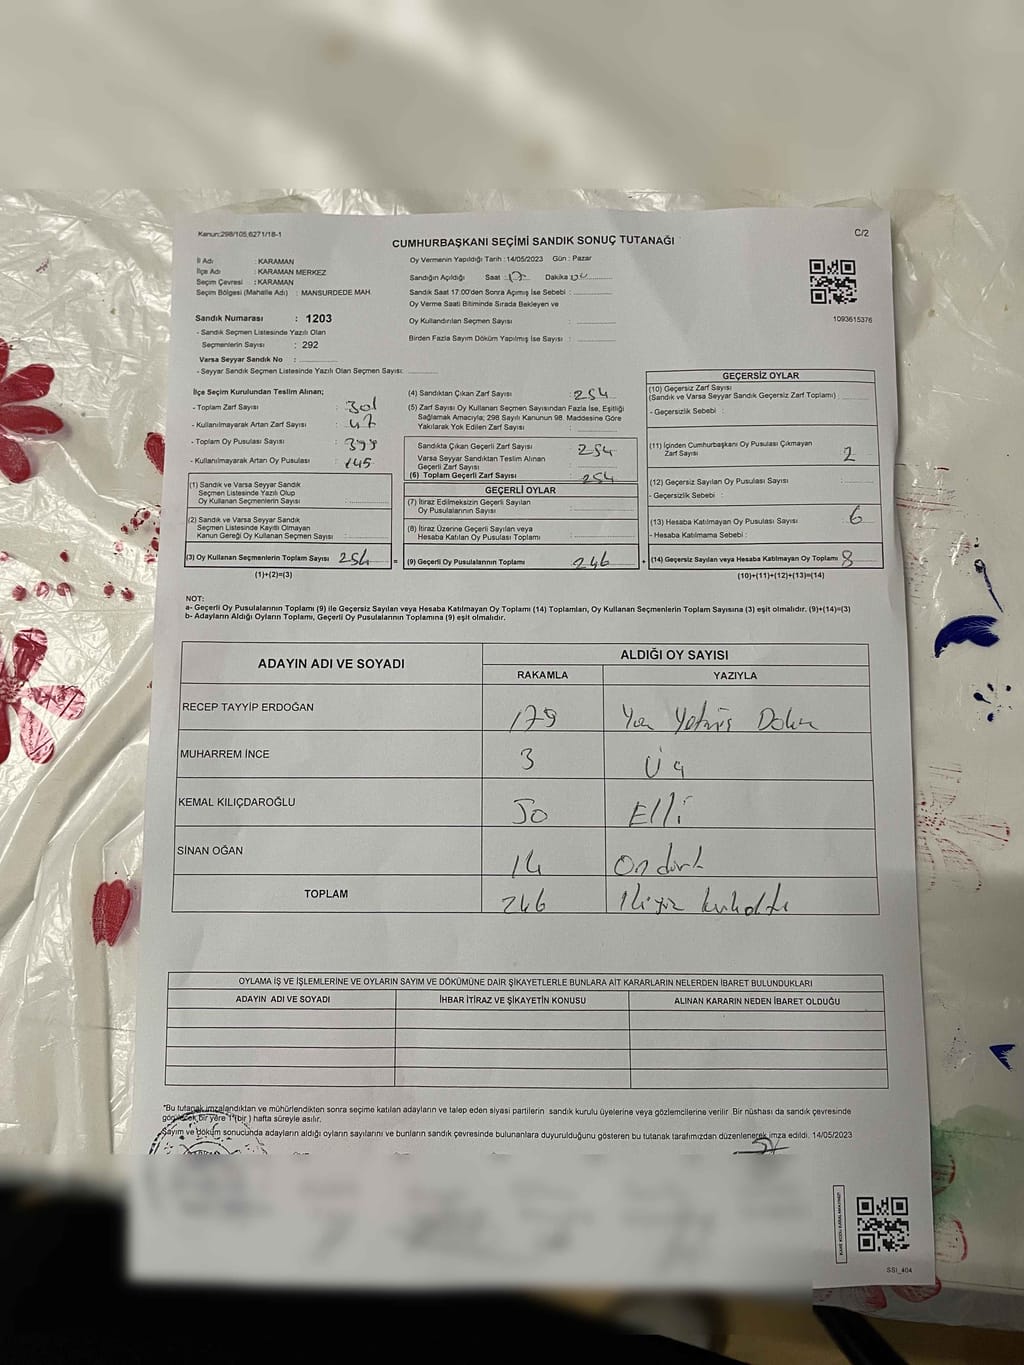 Kanun:298/105,6271/18-1
C/2
CUMHURBAŞKANI SEÇİMİ SANDIK SONUÇ TUTANAĞI
İl Adı : KARAMAN
İlçe Adı : KARAMAN MERKEZ
Seçim Çevresi : KARAMAN
Seçim Bölgesi (Mahalle Adı) : MANSURDEDE MAH.
Sandık Numarası : 1203
- Sandık Seçmen Listesinde Yazılı Olan
Seçmenlerin Sayısı : 292
Varsa Seyyar Sandık No :
- Seyyar Sandık Seçmen Listesinde Yazılı Olan Seçmen Sayısı:
Oy Vermenin Yapıldığı Tarih :14/05/2023 Gün : Pazar
Sandığın Açıldığı Saat : 17 Dakika :
Sandık Saat 17:00'den Sonra Açımış İse Sebebi :
Oy Verme Saati Bitiminde Sırada Bekleyen ve
Oy Kullandırılan Seçmen Sayısı :
Birden Fazla Sayım Döküm Yapılmış İse Sayısı :
1093615376
İlçe Seçim Kurulundan Teslim Alınan;
- Toplam Zarf Sayısı : 301
- Kullanılmayarak Artan Zarf Sayısı : 47
- Toplam Oy Pusulası Sayısı : 399
- Kullanılmayarak Artan Oy Pusulası : 145
(1) Sandık ve Varsa Seyyar Sandık
Seçmen Listesinde Yazılı Olup
Oy Kullanan Seçmenlerin Sayısı :
(2) Sandık ve Varsa Seyyar Sandık
Seçmen Listesinde Kayıtlı Olmayan
Kanun Gereği Oy Kullanan Seçmen Sayısı :
(3) Oy Kullanan Seçmenlerin Toplam Sayısı 254
(1)+(2)=(3)
(4) Sandıktan Çıkan Zarf Sayısı : 254
(5) Zarf Sayısı Oy Kullanan Seçmen Sayısından Fazla İse, Eşitliği
Sağlamak Amacıyla; 298 Sayılı Kanunun 98. Maddesine Göre
Yakılarak Yok Edilen Zarf Sayısı :
Sandıkta Çıkan Geçerli Zarf Sayısı : 254
Varsa Seyyar Sandıktan Teslim Alınan
Geçerli Zarf Sayısı :
(6) Toplam Geçerli Zarf Sayısı : 254
GEÇERLİ OYLAR
(7) İtiraz Edilmeksizin Geçerli Sayılan
Oy Pusulalarının Sayısı :
(8) İtiraz Üzerine Geçerli Sayılan veya
Hesaba Katılan Oy Pusulası Toplamı :
= (9) Geçerli Oy Pusulalarının Toplamı 246
GEÇERSİZ OYLAR
(10) Geçersiz Zarf Sayısı
(Sandık ve Varsa Seyyar Sandık Geçersiz Zarf Toplamı)
- Geçersizlik Sebebi :
(11) İçinden Cumhurbaşkanı Oy Pusulası Çıkmayan
Zarf Sayısı 2
(12) Geçersiz Sayılan Oy Pusulası Sayısı :
- Geçersizlik Sebebi :
(13) Hesaba Katılmayan Oy Pusulası Sayısı 6
- Hesaba Katılmama Sebebi :
+ (14) Geçersiz Sayılan veya Hesaba Katılmayan Oy Toplamı 8
(10)+(11)+(12)+(13)=(14)
NOT:
a- Geçerli Oy Pusulalarının Toplamı (9) ile Geçersiz Sayılan veya Hesaba Katılmayan Oy Toplamı (14) Toplamları, Oy Kullanan Seçmenlerin Toplam Sayısına (3) eşit olmalıdır. (9)+(14)=(3)
b- Adayların Aldığı Oyların Toplamı, Geçerli Oy Pusulalarının Toplamına (9) eşit olmalıdır.
ADAYIN ADI VE SOYADI
ALDIĞI OY SAYISI
RAKAMLA YAZIYLA
RECEP TAYYİP ERDOĞAN 179 Yüz Yetmiş Dokuz
MUHARREM İNCE 3 Üç
KEMAL KILIÇDAROĞLU 50 Elli
SİNAN OĞAN 14 Ondört
TOPLAM 246 İkiyüz kırkaltı
OYLAMA İŞ VE İŞLEMLERİNE VE OYLARIN SAYIM VE DÖKÜMÜNE DAİR ŞİKAYETLERLE BUNLARA AİT KARARLARIN NELERDEN İBARET BULUNDUKLARI
ADAYIN ADI VE SOYADI İHBAR İTİRAZ VE ŞİKAYETİN KONUSU ALINAN KARARIN NEDEN İBARET OLDUĞU
*Bu tutanak imzalandıktan ve mühürlendikten sonra seçime katılan adayların ve talep eden siyasi partilerin sandık kurulu üyelerine veya gözlemcilerine verilir. Bir nüshası da sandık çevresinde
görülecek bir yere 1 (bir) hafta süreyle asılır.
Sayım ve döküm sonucunda adayların aldığı oyların sayılarını ve bunların sandık çevresinde bulunanlara duyurulduğunu gösteren bu tutanak tarafımızdan düzenlenerek imza edildi. 14/05/2023
SSI_404